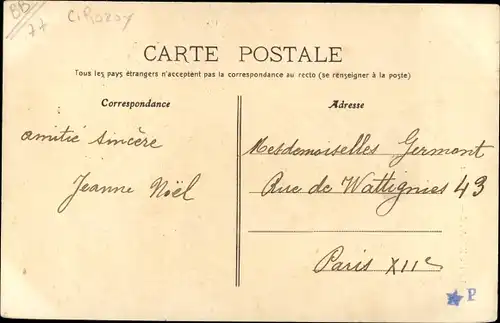 BB
77
CARTE POSTALE
Tous les pays étrangers n'acceptent pas la correspondance au recto (se renseigner à la poste)
Correspondance
Adresse
amitié sincère
Jeanne Noël
Mesdemoiselles Germont
Rue de Wattignies 43
Paris XIIe
P